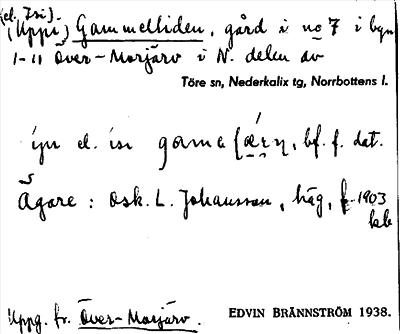 (el. Isi).
(Uppi) Gammelliden, gård i no 7 i byn
1-11 Över-Morjärv i N. delen av
Töre sn, Nederkalix tg, Norrbottens l.
bf. f. dat.
Ägare: Osk. L. Johansson, häg, f. 1903
Uppg. fr. Över-Morjärv.
EDVIN BRÄNNSTRÖM 1938.